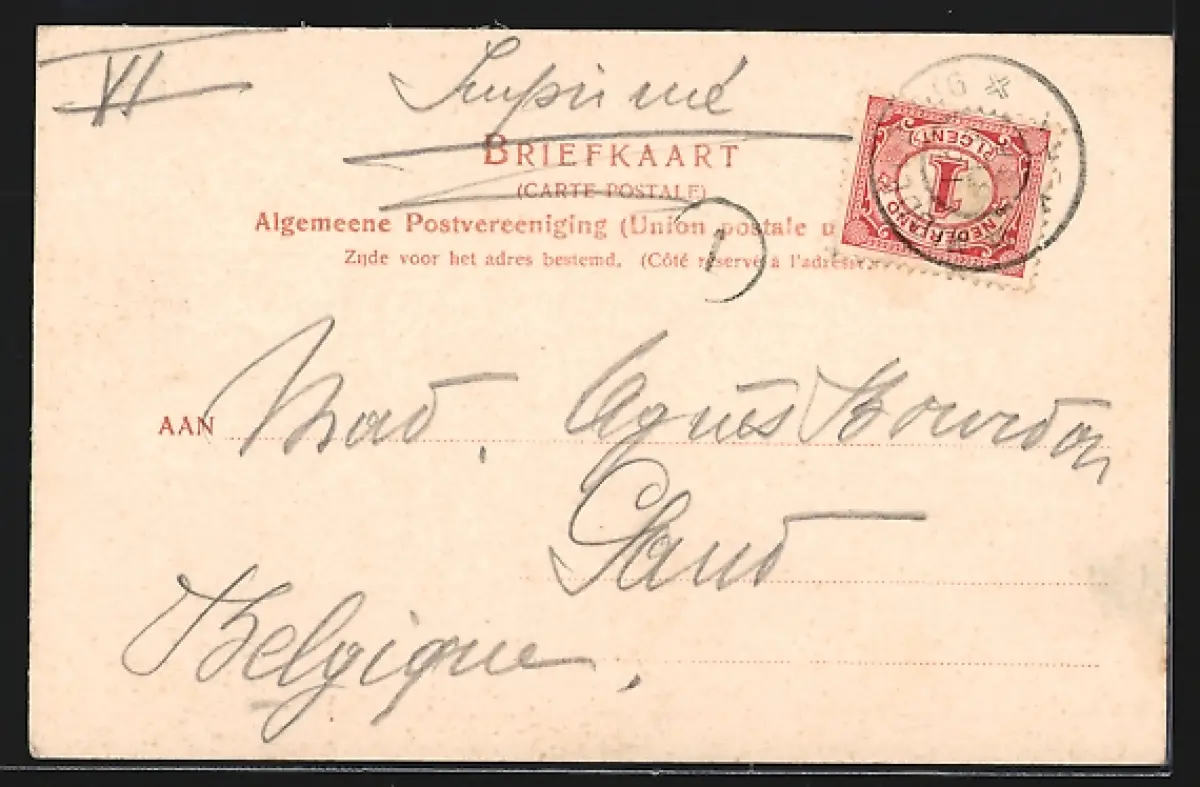 VI
Imprimé
BRIEFKAART
(CARTE POSTALE)
Algemeene Postvereeniging (Union postale u
Zijde voor het adres bestemd. (Côté réservé à l'adresse
1
1
(1 CENT)
NEDERLAND
AAN Mad. Agnès Bourdon
Gand
Belgique.